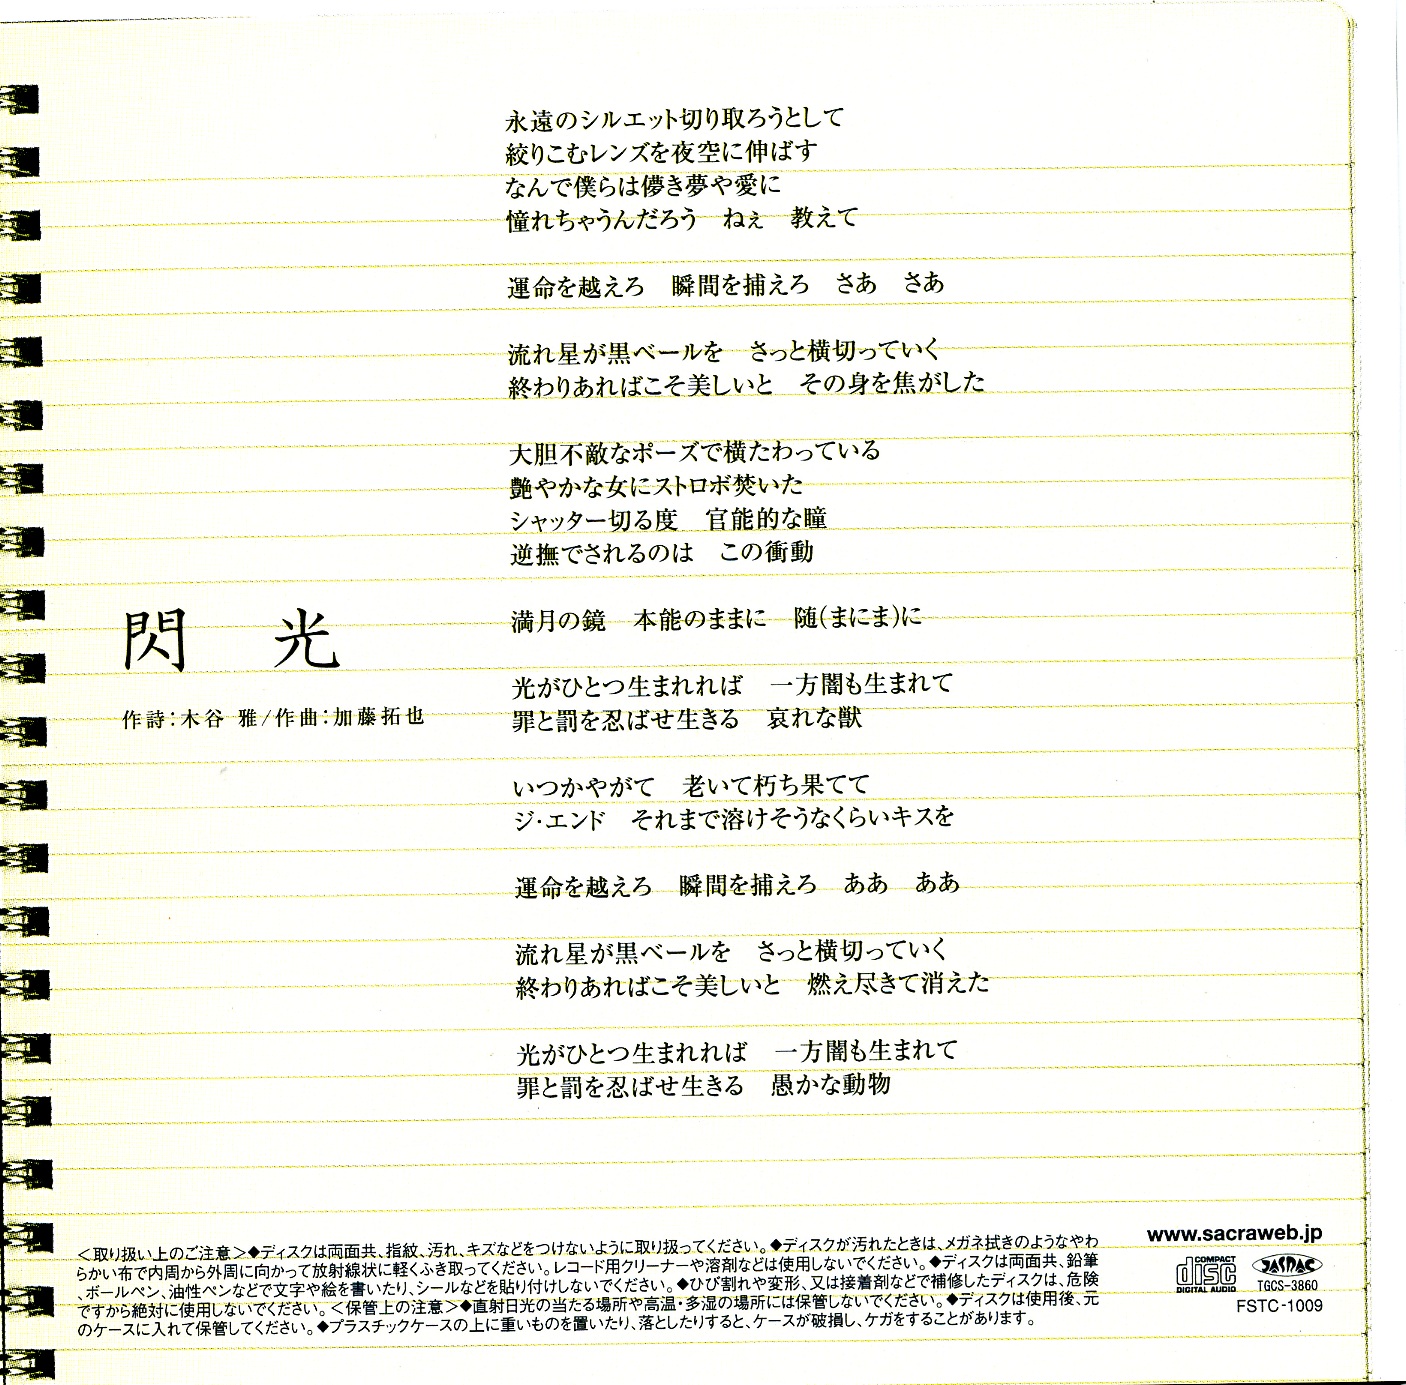 閃 光
作詩:木谷 雅/作曲:加藤拓也
永遠のシルエット切り取ろうとして
絞りこむレンズを夜空に伸ばす
なんで僕らは儚き夢や愛に
憧れちゃうんだろう ねぇ 教えて
運命を越えろ 瞬間を捕えろ さあ さあ
流れ星が黒ベールを さっと横切っていく
終わりあればこそ美しいと その身を焦がした
大胆不敵なポーズで横たわっている
艶やかな女にストロボ焚いた
シャッター切る度 官能的な瞳
逆撫でされるのは この衝動
満月の鏡 本能のままに 随(まにま)に
光がひとつ生まれれば 一方闇も生まれて
罪と罰を忍ばせ生きる 哀れな獣
いつかやがて 老いて朽ち果てて
ジ・エンド それまで溶けそうなくらいキスを
運命を越えろ 瞬間を捕えろ ああ ああ
流れ星が黒ベールを さっと横切っていく
終わりあればこそ美しいと 燃え尽きて消えた
光がひとつ生まれれば 一方闇も生まれて
罪と罰を忍ばせ生きる 愚かな動物
<取り扱い上のご注意>◆ディスクは両面共、指紋、汚れ、キズなどをつけないように取り扱ってください。◆ディスクが汚れたときは、メガネ拭きのようなやわ
らかい布で内周から外周に向かって放射線状に軽くふき取ってください。レコード用クリーナーや溶剤などは使用しないでください。◆ディスクは両面共、鉛筆
、ボールペン、油性ペンなどで文字や絵を書いたり、シールなどを貼り付けしないでください。◆ひび割れや変形、又は接着剤などで補修したディスクは、危険
ですから絶対に使用しないでください。<保管上の注意>◆直射日光の当たる場所や高温・多湿の場所には保管しないでください。◆ディスクは使用後、元
のケースに入れて保管してください。◆プラスチックケースの上に重いものを置いたり、落としたりすると、ケースが破損し、ケガをすることがあります。
www.sacraweb.jp
COMPACT
disc
DIGITAL AUDIO
JASRAC
TGCS-3860
FSTC-1009